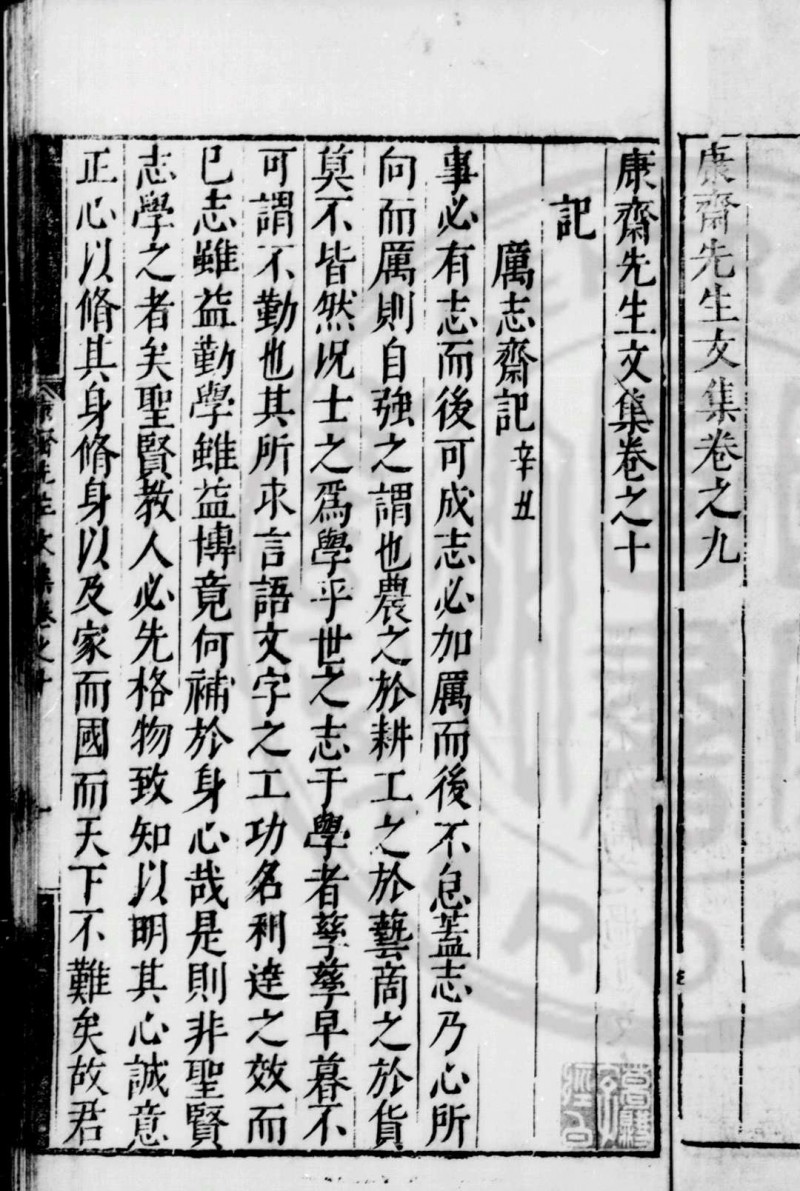 康齋先生文集卷之九
康齋先生文集卷之十
記
厲志齋記 辛丑
事必有志而後可成志必加厲而後不怠葢志乃心所
向而厲則自強之謂也農之於耕工之於藝商之於貨
莫不皆然况士之爲學乎世之志于學者孳孳早暮不
可謂不勤也其所求言語文字之工功名利達之效而
已志雖益勤學雖益博竟何補於身心哉是則非聖賢
志學之者矣聖賢教人必先格物致知以明其心誠意
正心以脩其身脩身以及家而國而天下不難矣故君
康齋先生文集卷之十
一